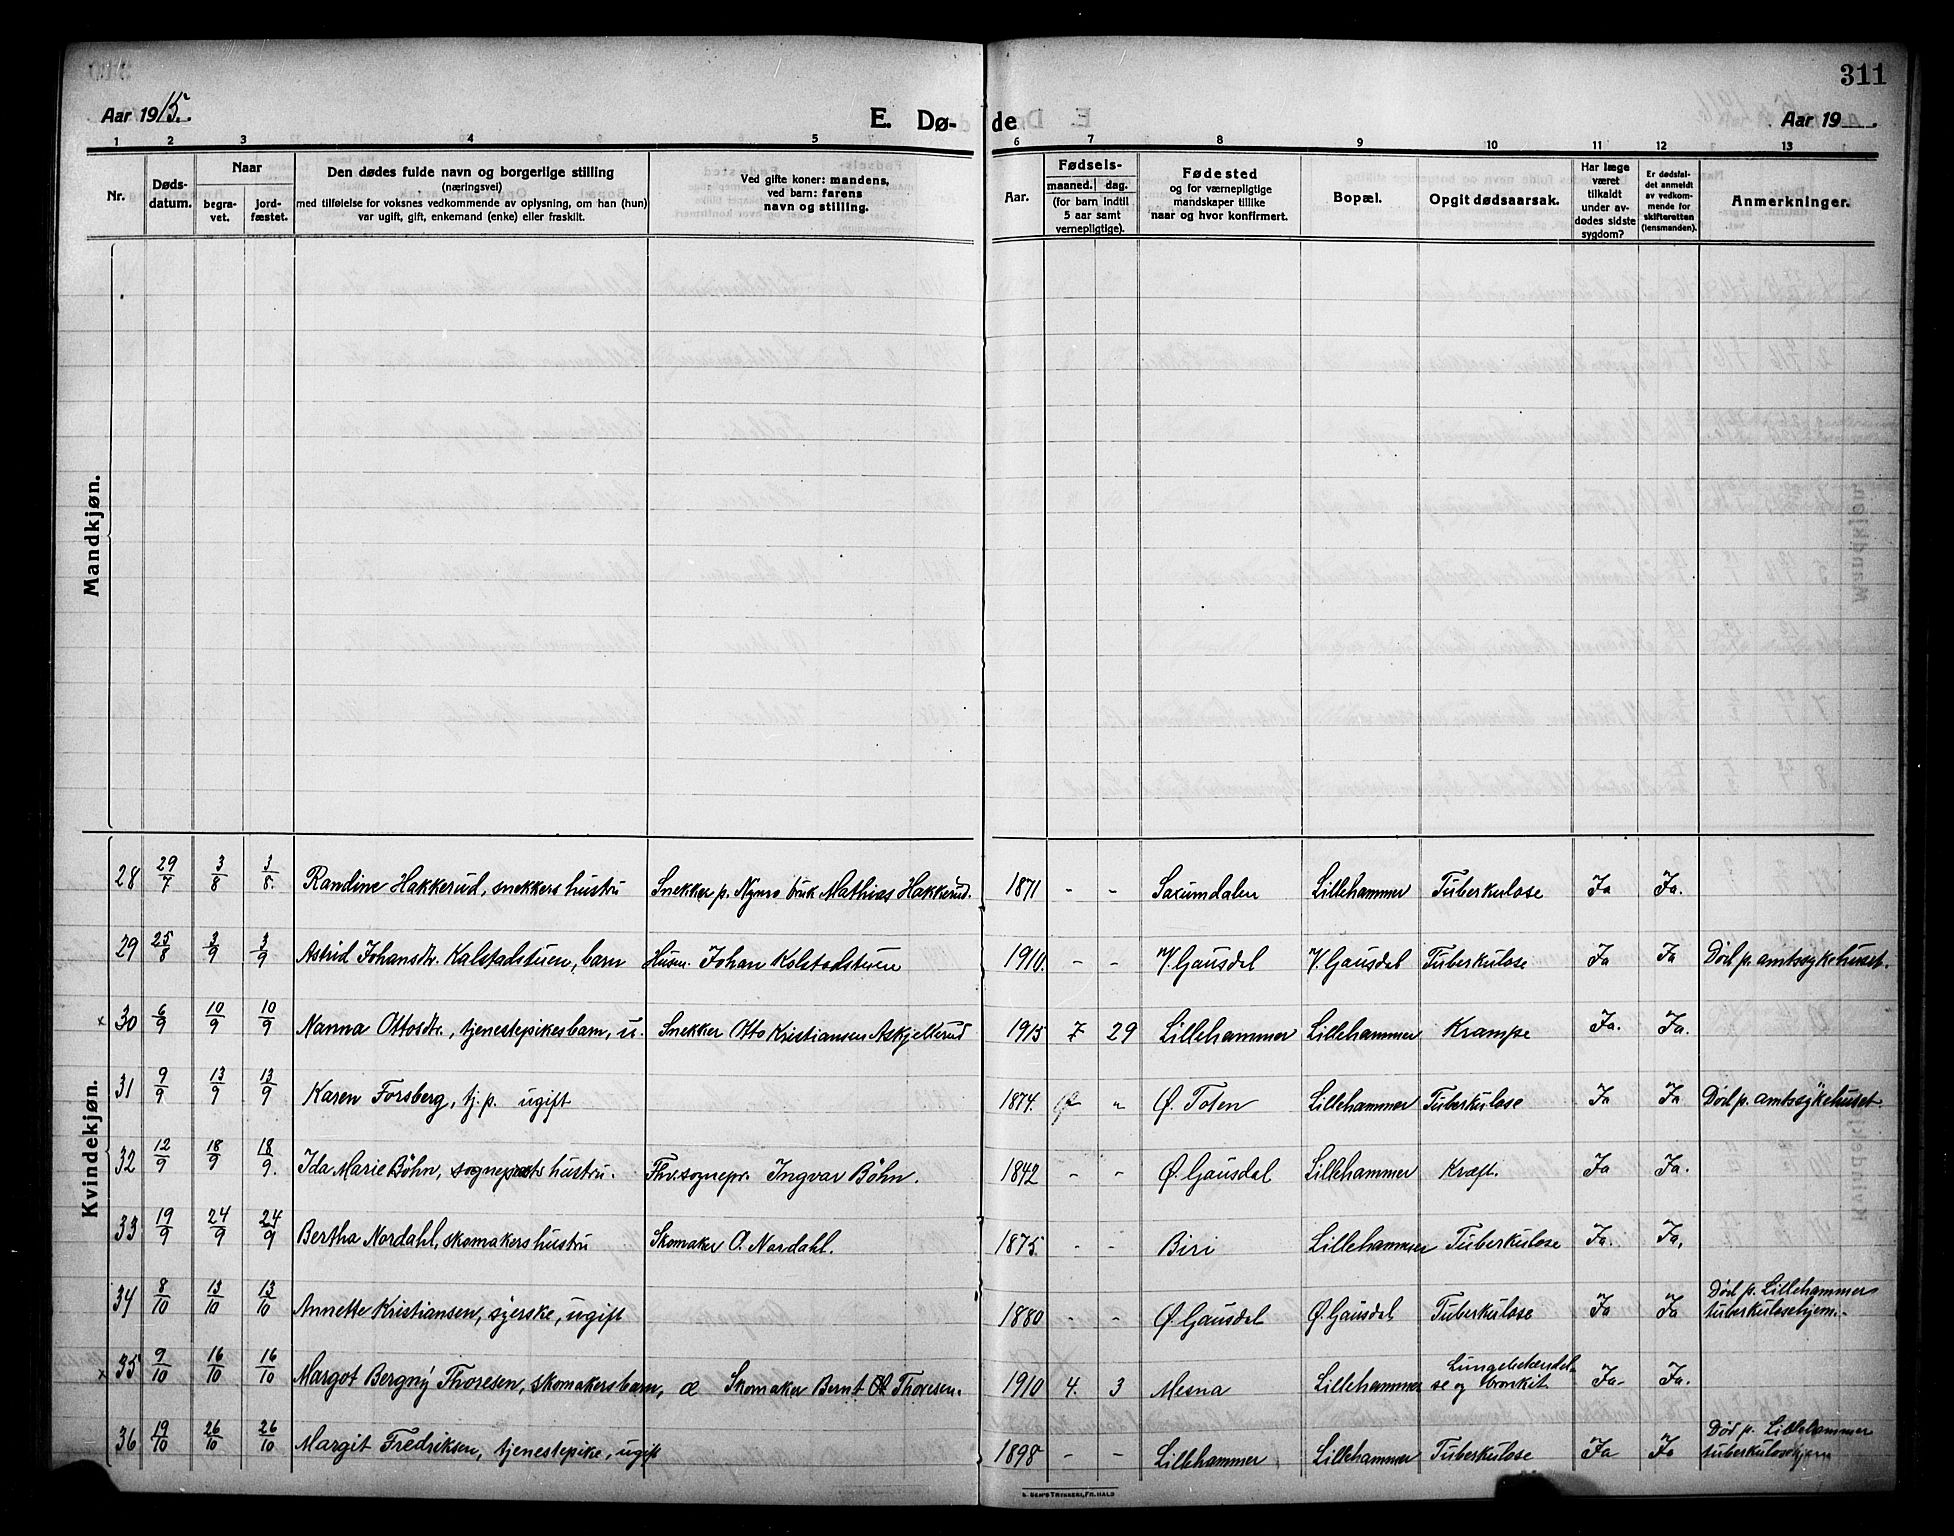 311
Aar 1915.
E. Dø- de
Aar 19
1 2 3 4 5 6 7 8 9 10 11 12 13
Nr.
Døds-
datum.
Naar
begra-
vet.
jord-
fæstet.
Den dødes fulde navn og borgerlige stilling
(næringsvei)
med tilføielse for voksnes vedkommende av oplysning, om han (hun)
var ugift, gift, enkemand (enke) eller fraskilt.
Ved gifte koner: mandens,
ved barn: farens
navn og stilling.
Aar.
Fødsels-
maaned. dag.
(for barn indtil
5 aar samt
vernepligtige).
Fødested
og for værnepligtige
mandskaper tillike
naar og hvor konfirmert.
Bopæl.
Opgit dødsaarsak.
Har læge
været
tilkaldt
under av-
dødes sidste
sygdom?
Er dødsfal-
det anmeldt
av vedkom-
mende for
skifteretten
(lensmanden).
Anmerkninger.
Mandkjøn.
Kvindekjøn.
28 29/7 3/8 3/8. Randine Hakkerud, snekkers hustru Snekker p. Nymo bruk Mathias Hakkerud. 1871 - - Saxumdalen Lillehammer Tuberkulose Ja Ja.
29 25/8 3/9 3/9 Astrid Johansdtr. Kalstadstuen, barn Husm. Johan Kolstadstuen 1910. - - V. Gausdal V. Gausdal Tuberkulose Ja Ja Død p. amtssykehuset.
x 30 6/9 10/9 10/9 Nanna Ottosdtr., tjenestepikesbarn, u. Snekker Otto Kristiansen Askjellerud 1915 7 29 Lillehammer Lillehammer Krampe Ja. Ja.
31 9/9 13/9 13/9 Karen Forsberg, tj. p. ugift 1874. " Ø. Toten Lillehammer Tuberkulose Ja Ja Død p. amtssykehuset.
32 12/9 18/9 18/9. Ida Marie Bøhn, sogneprests hustru. Fhv. sognepr. Ingvar Bøhn. 1842 - - Ø. Gausdal Lillehammer Kræft. Ja Ja.
33 19/9 24/9 24/9 Bertha Nordahl, skomakers hustru Skomaker O. Nordahl. 1875. - - Biri Lillehammer Tuberkulose Ja. Ja.
34 8/10 13/10 13/10 Annette Kristiansen, syerske, ugift 1880 - - Ø. Gausdal Ø. Gausdal Tuberkulose Ja Ja Død p. Lillehammers
tuberkulosehjem.
x 35 9/10 16/10 16/10 Margot Bergny Thoresen, skomakersbarn, æ Skomaker Bernt Thoresen. 1910 4. 3 Mesna Lillehammer Lungebetændel-
se og bronkit. Ja. Ja.
36 19/10 26/10 26/10 Margit Fredriksen, tjenestepike, ugift 1898 - - Lillehammer Lillehammer Tuberkulose Ja Ja Død p. Lillehammer
tuberkulosehjem